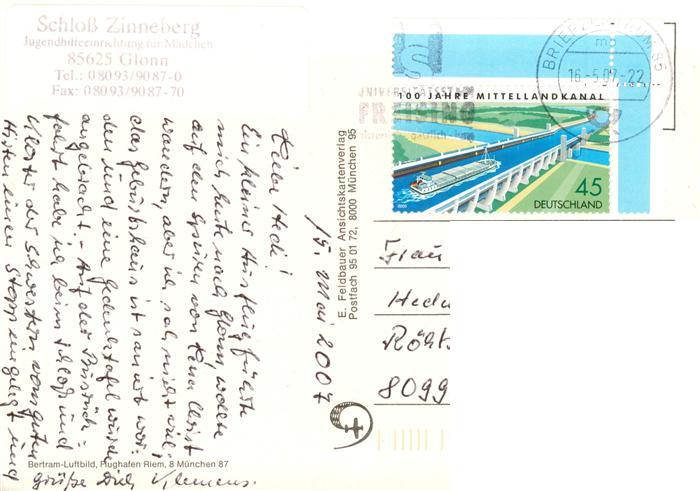 Schloß Zinneberg
Jugendhilfeeinrichtung für Mädchen
85625 Glonn
Tel.: 0 80 93/90 87-0
Fax: 0 80 93/90 87-70
15. Mai 2007
Liebe Hedi!
Ein kleiner Ausflug führte
mich heute nach Glonn, wollte
auf den Spuren von Lena Christ
wandern, aber ich sah nicht viel,
das Geburtshaus ist saniert wor-
den und eine Gedenktafel wurde
angebracht. - Auf der Rückfahrt
habe ich beim Schloß und
Kloster der Schwestern vom guten
Hirten einen Stopp eingelegt und
grüße Dich Klemens.
Bertram-Luftbild, Flughafen Riem, 8 München 87
E. Feldbauer Ansichtskartenverlag
Postfach 95 01 72, 8000 München 95
BRIEFZENTRUM 85
mb
16.-5.07-22
UNIVERSITÄTSSTADT
FREISING
100 JAHRE MITTELLANDKANAL
45
DEUTSCHLAND
Frau
8099